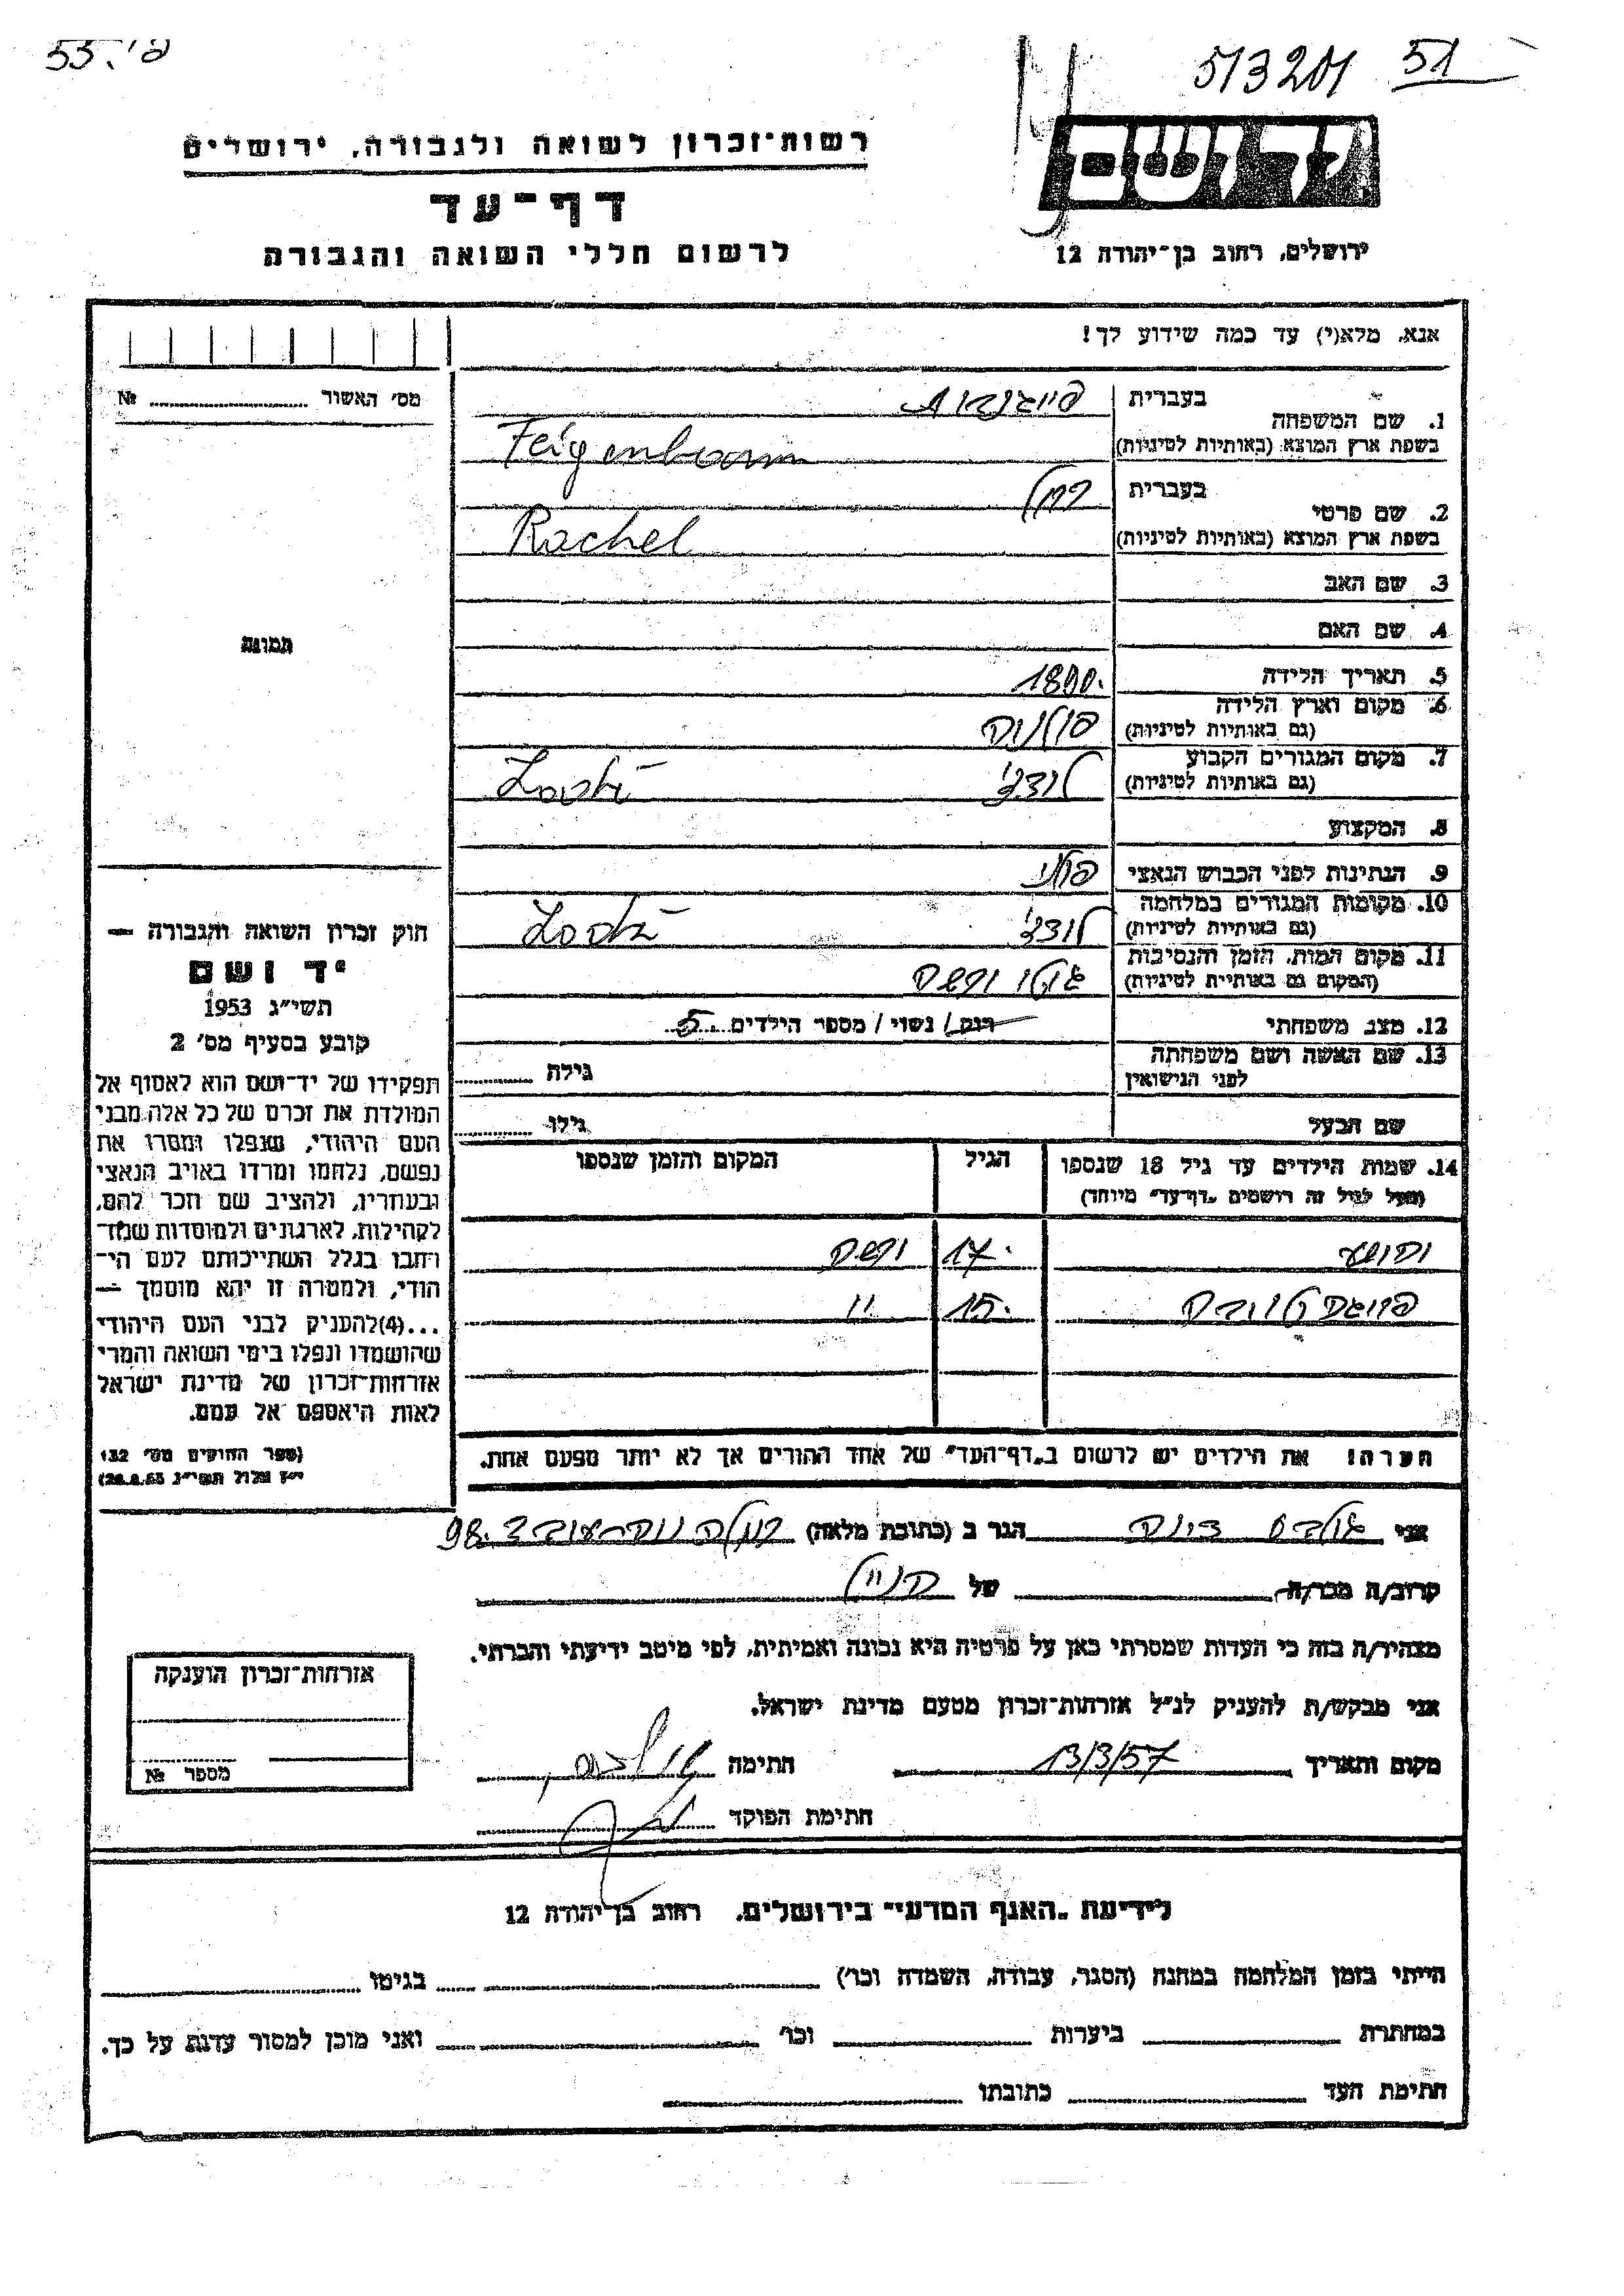 55. פי
513201 51
רשות־זכרון לשואה ולגבורה, ירושלים
יד ושם
דף־עד
לרשום חללי השואה והגבורה
ירושלים, רחוב בן־יהודה 12
אנא, מלא(י) עד כמה שידוע לך!
מס׳ האשור № 
בעברית
1. שם המשפחה
בשפת ארץ המוצא (באותיות לטיניות) Feigenboam
בעברית רחל
2. שם פרטי
בשפת ארץ המוצא (באותיות לטיניות) Rachel
3. שם האב
4. שם האם
תמונה
5. תאריך הלידה 1890.
6. מקום וארץ הלידה פולניה
(גם באותיות לטיניות)
7. מקום המגורים הקבוע
(גם באותיות לטיניות) לודז׳
8. המקצוע
9. הנתינות לפני הכבוש הנאצי פולני
10. מקומות המגורים במלחמה
(גם באותיות לטיניות) לודז׳
11. מקום המות, הזמן והנסיבות
(המקום גם באותיות לטיניות) גיטו ורשה
12. מצב משפחתי רוק / נשוי / מספר הילדים 5
13. שם האשה ושם משפחתה
לפני הנישואין גילה
שם הבעל גילו
14. שמות הילדים עד גיל 18 שנספו הגיל המקום והזמן שנספו
(מעל לגיל זה רושמים „דף־עד״ מיוחד)
יהושע 17. ורשה
15. 11
הערה! את הילדים יש לרשום ב„דף־העד״ של אחד ההורים אך לא יותר מפעם אחת.
חוק זכרון השואה והגבורה —
יד ושם
תשי״ג 1953
קובע בסעיף מס׳ 2
תפקידו של יד־ושם הוא לאסוף אל
המולדת את זכרם של כל אלה מבני
העם היהודי, שנפלו ומסרו את
נפשם, נלחמו ומרדו באויב הנאצי
ובעוזריו, ולהציב שם וזכר להם,
לקהילות, לארגונים ולמוסדות שנח־
רחבו בגלל השתייכותם לעם הי־
הודי, ולמטרה זו יהא מוסמך —
...(4)להעניק לבני העם היהודי
שהושמדו ונפלו בימי השואה והמרי
אזרחות־זכרון של מדינת ישראל
לאות היאספם אל עמם.
(ספר החוקים מס׳ 132
י״ז אלול תשי״ג 28.8.53)
אני הגר ב (כתובת מלאה) 98.
קרוב/ה מכר/ה של
מצהיר/ה בזה כי העדות שמסרתי כאן על פרטיה היא נכונה ואמיתית, לפי מיטב ידיעתי והכרתי.
אני מבקש/ת להעניק לנ״ל אזרחות־זכרון מטעם מדינת ישראל.
מקום ותאריך 13/3/57 חתימה
חתימת הפוקד
אזרחות־זכרון הוענקה
מספר №
לידיעת „האגף המדעי״ בירושלים, רחוב בן־יהודה 12
הייתי בזמן המלחמה במחנה (הסגר, עבודה, השמדה וכו׳) בגיטו
במחתרת ביערות וכו׳ ואני מוכן למסור עדות על כך.
חתימת העד כתובתו